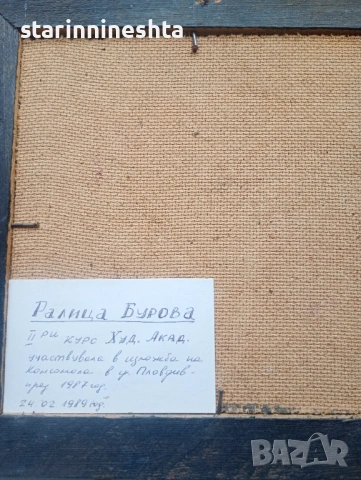 starinnineshta
РАЛИЦА БУРОВА
II РИ КУРС ХУД. АКАД.
участвувала в изложба на
Комсомола в гр. Пловдив -
1987 год.
24.02.1989 год.
BAZAR